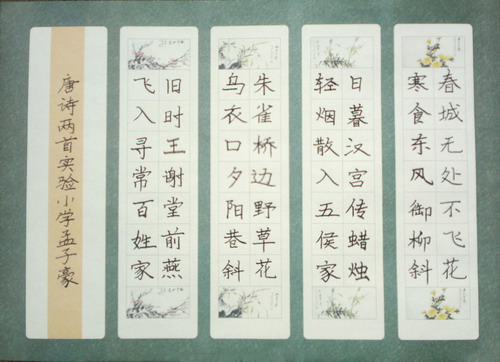 春城无处不飞花
寒食东风御柳斜
日暮汉宫传蜡烛
轻烟散入五侯家
朱雀桥边野草花
乌衣口夕阳巷斜
旧时王谢堂前燕
飞入寻常百姓家
唐诗两首实验小学孟子豪